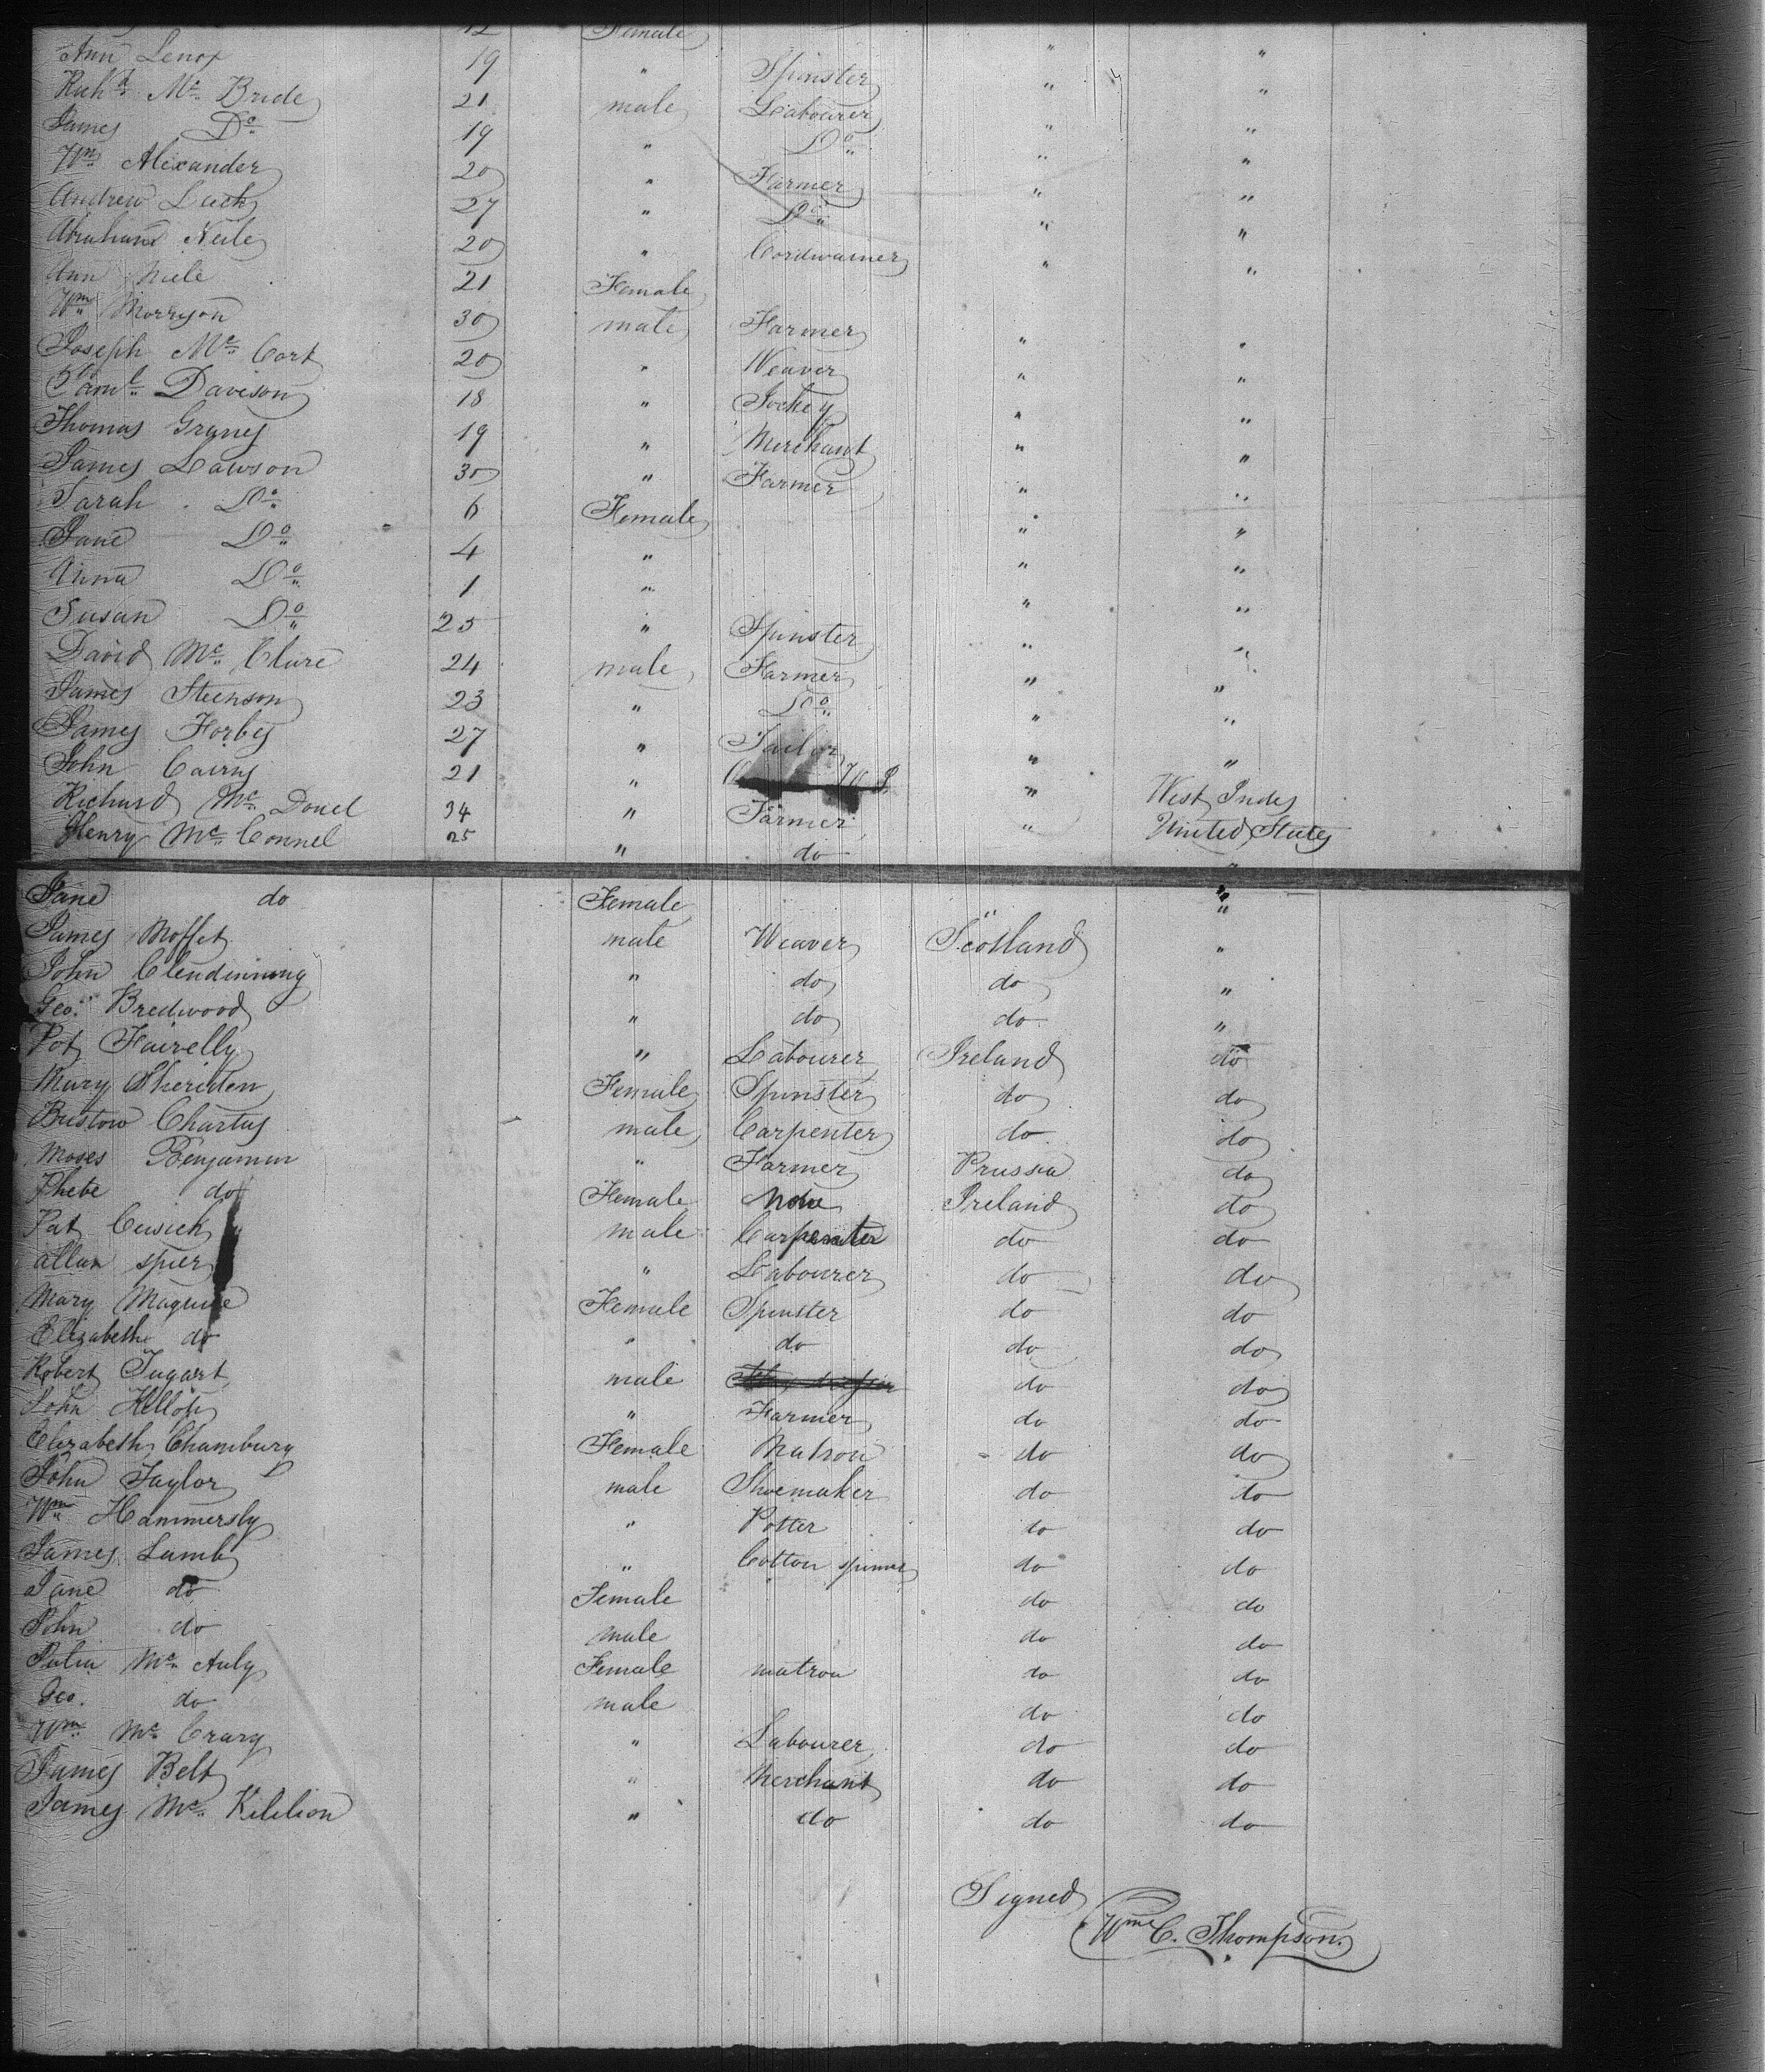 12 Female
Ann Lenox 19 " Spinster " "
Richd Mc Bride 21 male Labourer " "
James Do 19 " Do " "
Wm Alexander 20 " Farmer " "
Andrew Luck 27 " Do " "
Abraham Neile 20 " Cordwainer " "
Ann Niele 21 Female
Wm Morrison 30 male Farmer " "
Joseph Mc Cork 20 " Weaver " "
Saml Davison 18 " Jockey " "
Thomas Graney 19 " Merchant " "
James Lawson 30 " Farmer " "
Sarah Do 6 Female " "
Jane Do 4 " " "
Anna Do 1 " " "
Susan Do 25 " Spinster " "
David Mc Clure 24 male Farmer " "
James Steenson 23 " Do " "
James Forbes 27 " Tailor " "
John Cairns 21 " " West Indes
Richard Mc Donel 34 " Farmer " United States
Henry Mc Connel 25 " do "
Jane do Female " "
James Moffet male Weaver Scotland "
John Clendinning " do do "
Geo. Bredwood " do do "
Pat Fairelly " Labourer Ireland do
Mary Sheridan Female Spinster do do
Bustow Chartus male Carpenter do do
Moses Benjamin " Farmer Prussia do
Phebe do Female None Ireland do
Pat Cusick male Carpenter do do
allan spier " Labourer do do
Mary Maguire Female Spinster do do
Elizabeth do " do do do
Robert Tugart male do do
John Kellop " Farmer do do
Elizabeth Chambury Female Matron do do
John Taylor male Shoemaker do do
Wm Hammersly " Potter do do
James Lamb " Cotton spinner do do
Jane do Female do do
John do male do do
Julia Mc Auly Female matron do do
Geo. do male do do
Wm Mc Crary " Labourer do do
James Belt " Merchant do do
James Mc Killion " do do do
Signed
Wm C. Thompson.